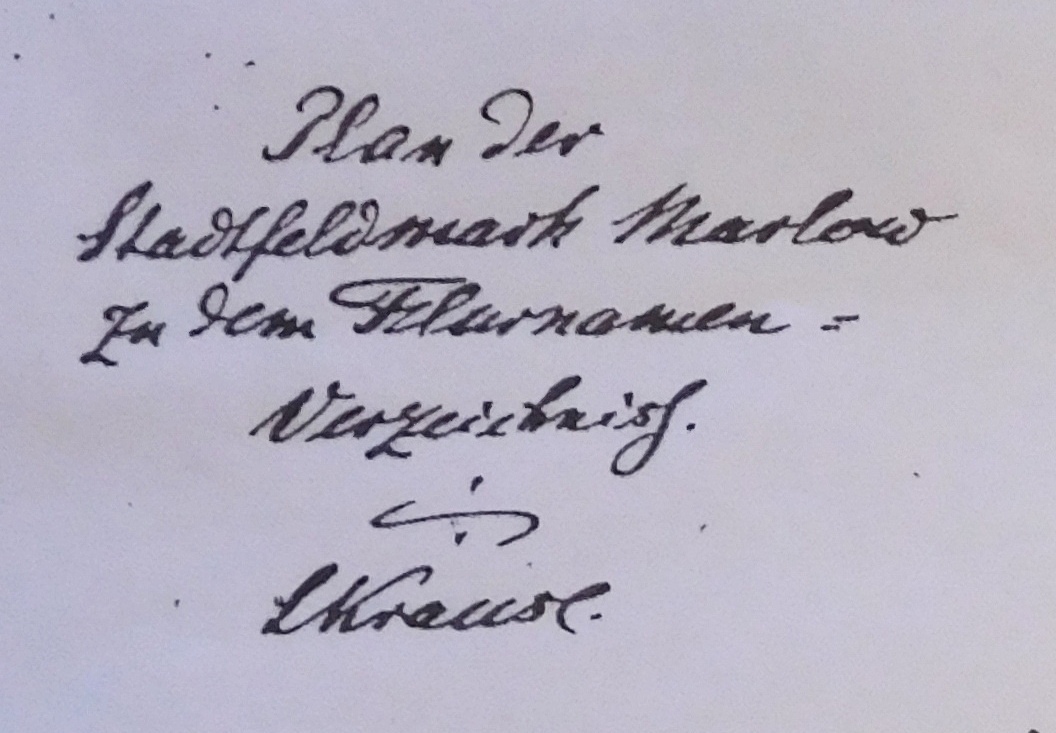 Plan der
Stadtfeldmark Marlow
zu dem Flurnamen=
Verzeichniss.
LKrause.